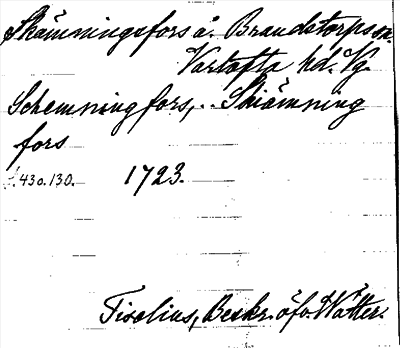 Skämningsfors å. Brandstorps sn.
Vartofta hd. Vg.
Schemningfors, .. Skiämning
fors
s. 43 o. 130. 1723.
Tiselius, Beskr. öfv. Wätter.